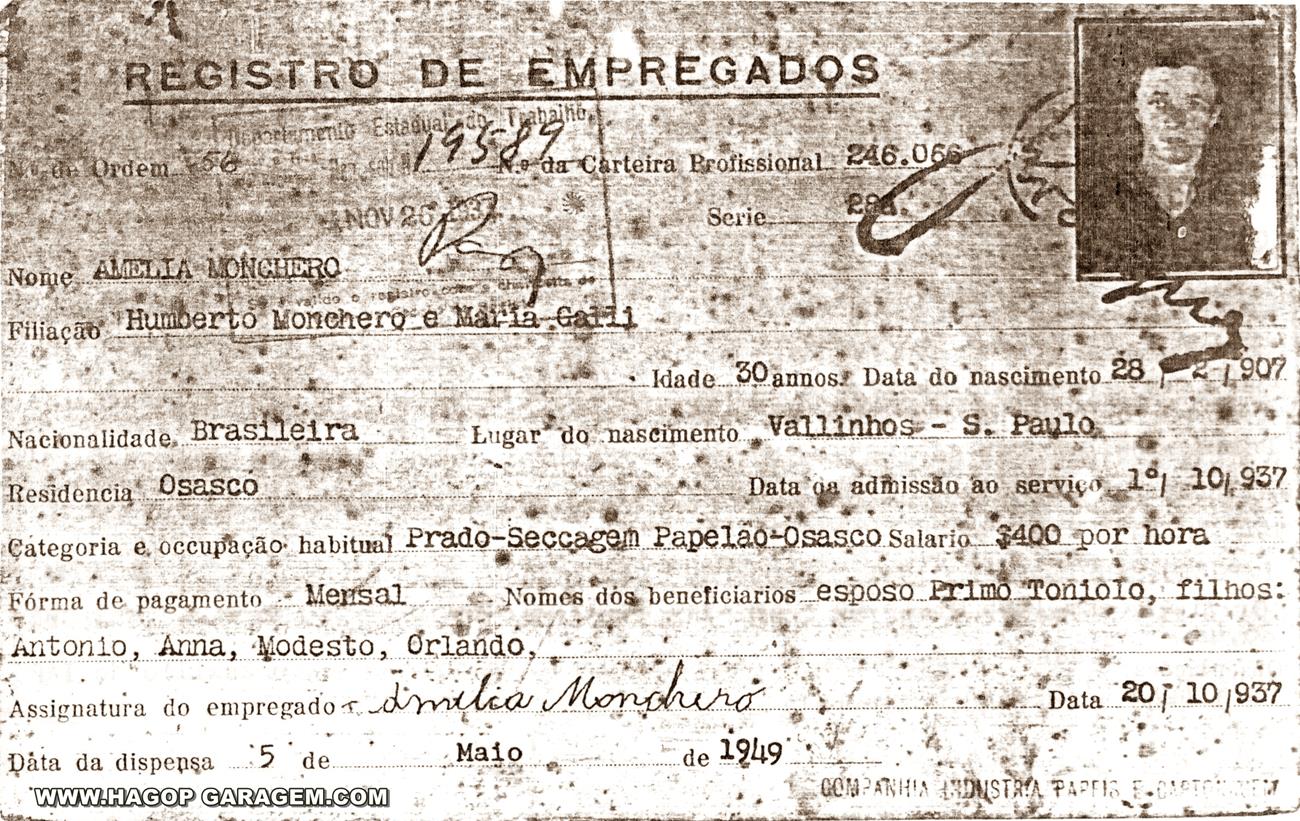 REGISTRO DE EMPREGADOS
Departamento Estadual do Trabalho
19589
N.º de Ordem 56 N.º da Carteira Profissional 246.066
NOV 26
Serie
Nome AMELIA MONCHERO
Filiação Humberto Monchero e Maria Galli
Idade 30 annos. Data do nascimento 28 / 2 / 907
Nacionalidade Brasileira Lugar do nascimento Vallinhos - S. Paulo
Residencia Osasco Data da admissão ao serviço 1º/ 10/ 937
Categoria e occupação habitual Prado-Seccagem Papelão-Osasco Salario $400 por hora
Fórma de pagamento Mensal Nomes dos beneficiarios esposo Primo Toniolo, filhos:
Antonio, Anna, Modesto, Orlando.
Assignatura do empregado Amelia Monchero Data 20/ 10/937
Data da dispensa 5 de Maio de 1949
COMPANHIA INDUSTRIA PAPEIS E CARTONAGEM
WWW.HAGOP GARAGEM.COM